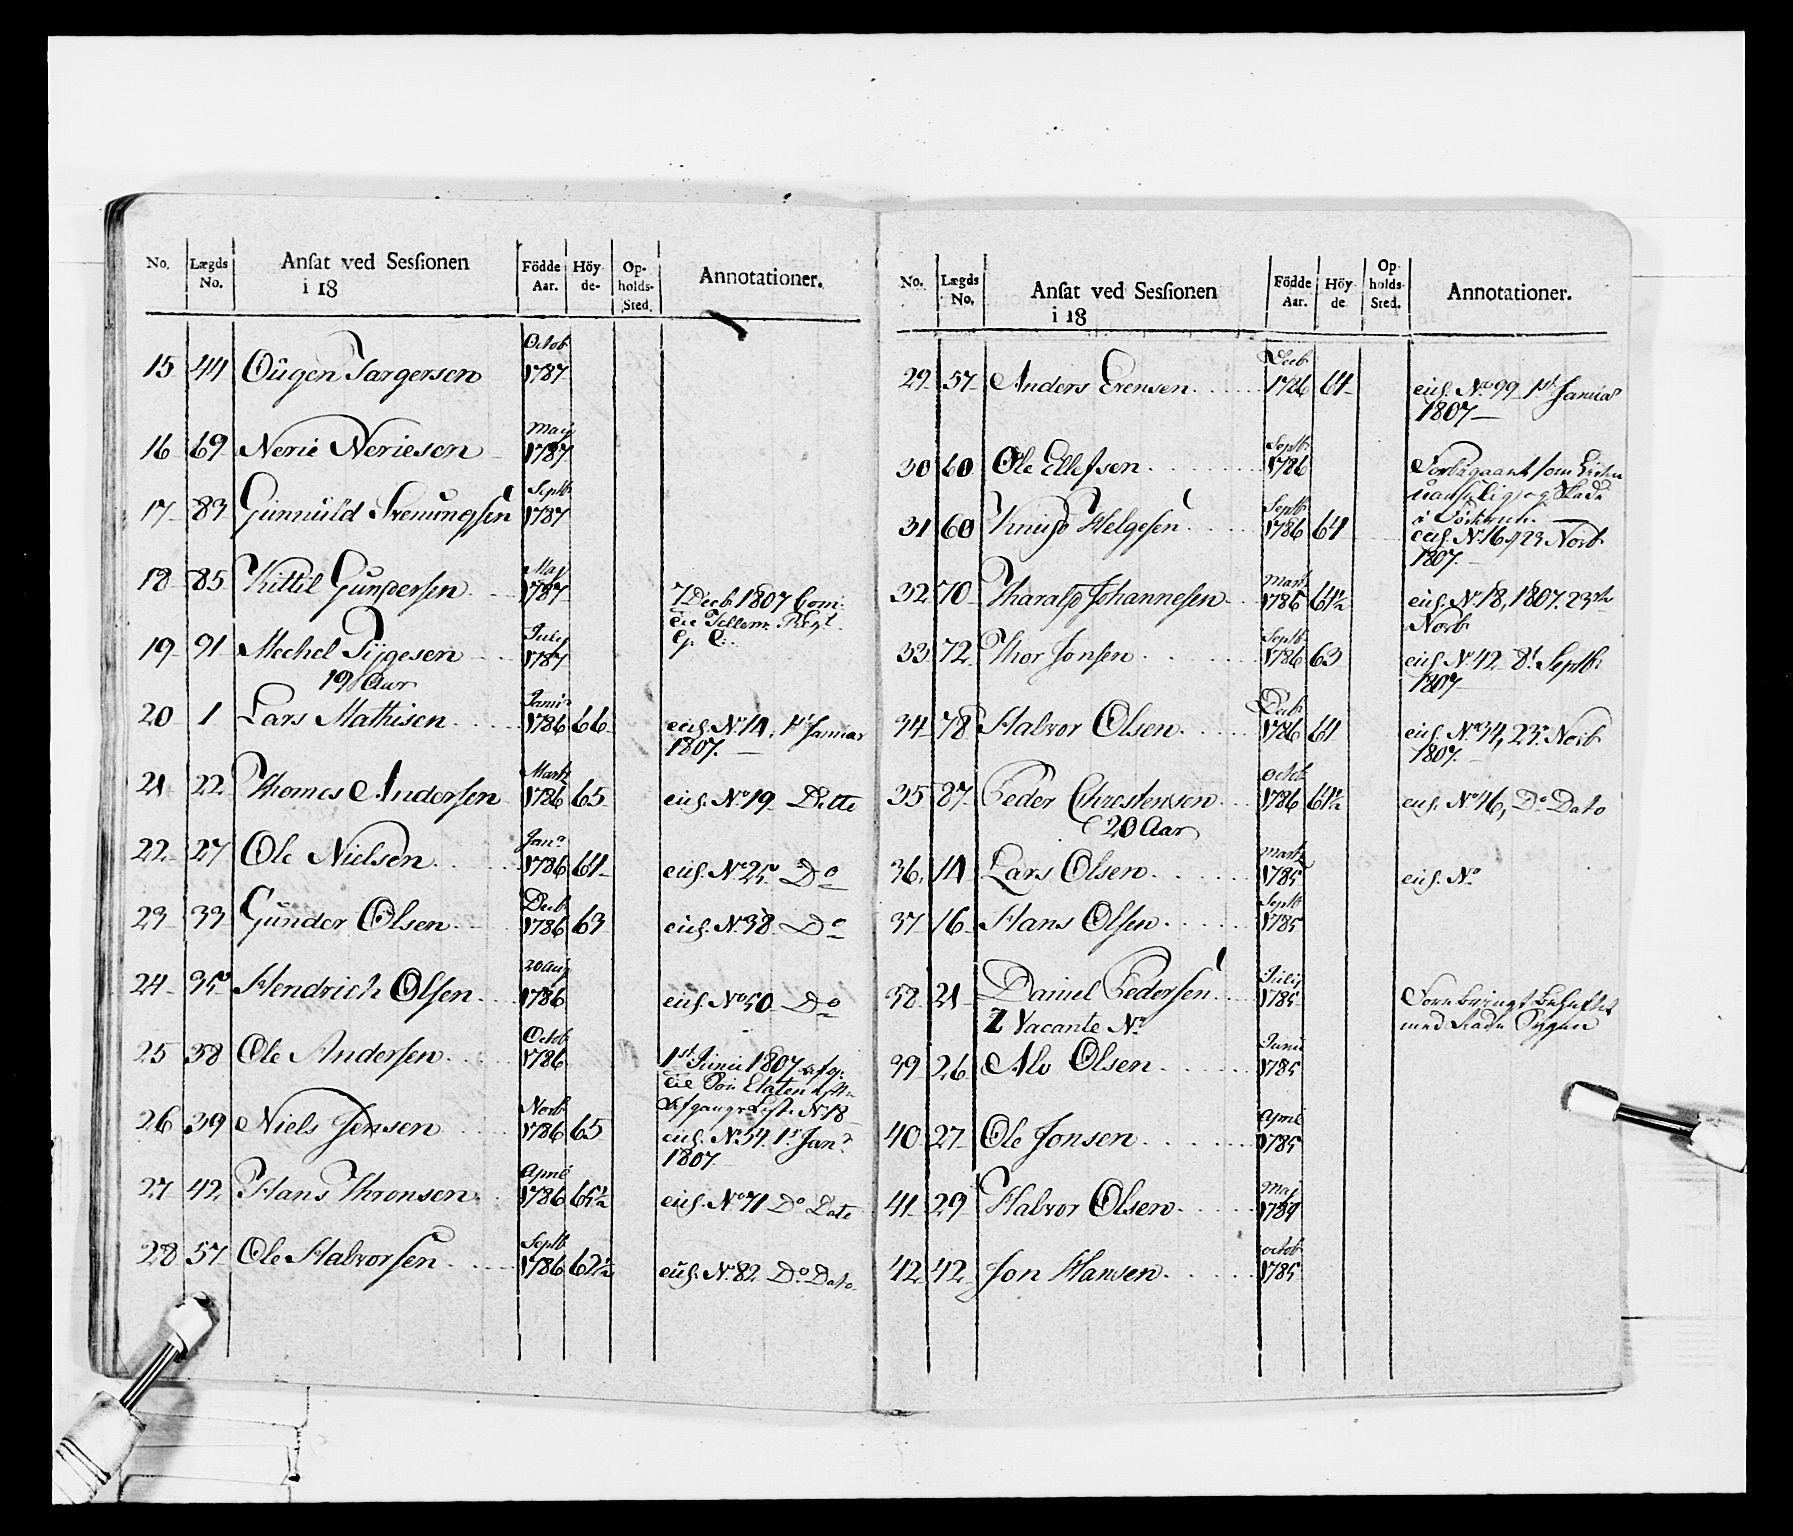 No. Lægds No. Ansat ved Sessionen i 18 Födde Aar. Höyde- Opholds-Sted. Annotationer.
15 44 Oügen Targersen Octob 1787
16 69 Nerie Neriesen May 1787
17 83 Gunnüld Svenungsen Septb 1787
18 85 Kittil Gundersen May 1787 7 Decb 1807
19 91 Mechel July 1787
19 Aar
20 1 Lars Mathisen Janu 1786 66 eijs. No 14, 1st Januar
1807.
21 22 Thomes Andersen Martz 1786 65 eijs. No 19 Ditto
22 27 Ole Nielsen Jan 1786 64 eijs. No 25 Do
23 33 Gunder Olsen Decb 1786 63 eijs. No 38 Do
24 35 Hendrich Olsen 20 Aug 1786 eijs. No 50 Do
25 38 Ole Andersen Octob 1786 1st Junii 1807
Afgangs Liste No 18
26 39 Niels Jensen Novb 1786 65 eijs. No 54. 1st Jan
1807
27 42 Hans Thronsen April 1786 65½ eijs. No 71 Do Dato
28 57 Ole Halvorsen Septb 1786 62½ eijs. No 82 Do Dato
No. Lægds No. Ansat ved Sessionen i 18 Födde Aar. Höyde Opholds-Sted. Annotationer.
29 57 Anders Evensen Decb 1786 64 eijs. No 99 1st Januar
1807
30 60 Ole Ellefsen Septb 1786
31 60 Knud Helgesen Septb 1786 64 eijs. No 16, 23 Novb
1807.
32 70 Tharald Johannesen Martz 1786 64½ eijs. No 18, 1807. 23de
Novb
33 72 Thor Jonsen Septb 1786 63 eijs No 42 8t Septb
1807
34 78 Halvor Olsen Decb 1786 64 eijs. No 34, 23 Novb
1807.
35 87 Peder Chrestensen Octb 1786 64½ eijs. No 46, Do Dato
20 Aar
36 14 Lars Olsen Martz 1785 eijs. No
37 16 Hans Olsen Septb 1785
38 21 Daniel Pedersen July 1785
2 Vacante No
39 26 Alv Olsen Junii 1785
40 27 Ole Jonsen April 1785
41 29 Halvor Olsen Maj 1784
42 42 Jon Hansen Octob 1785